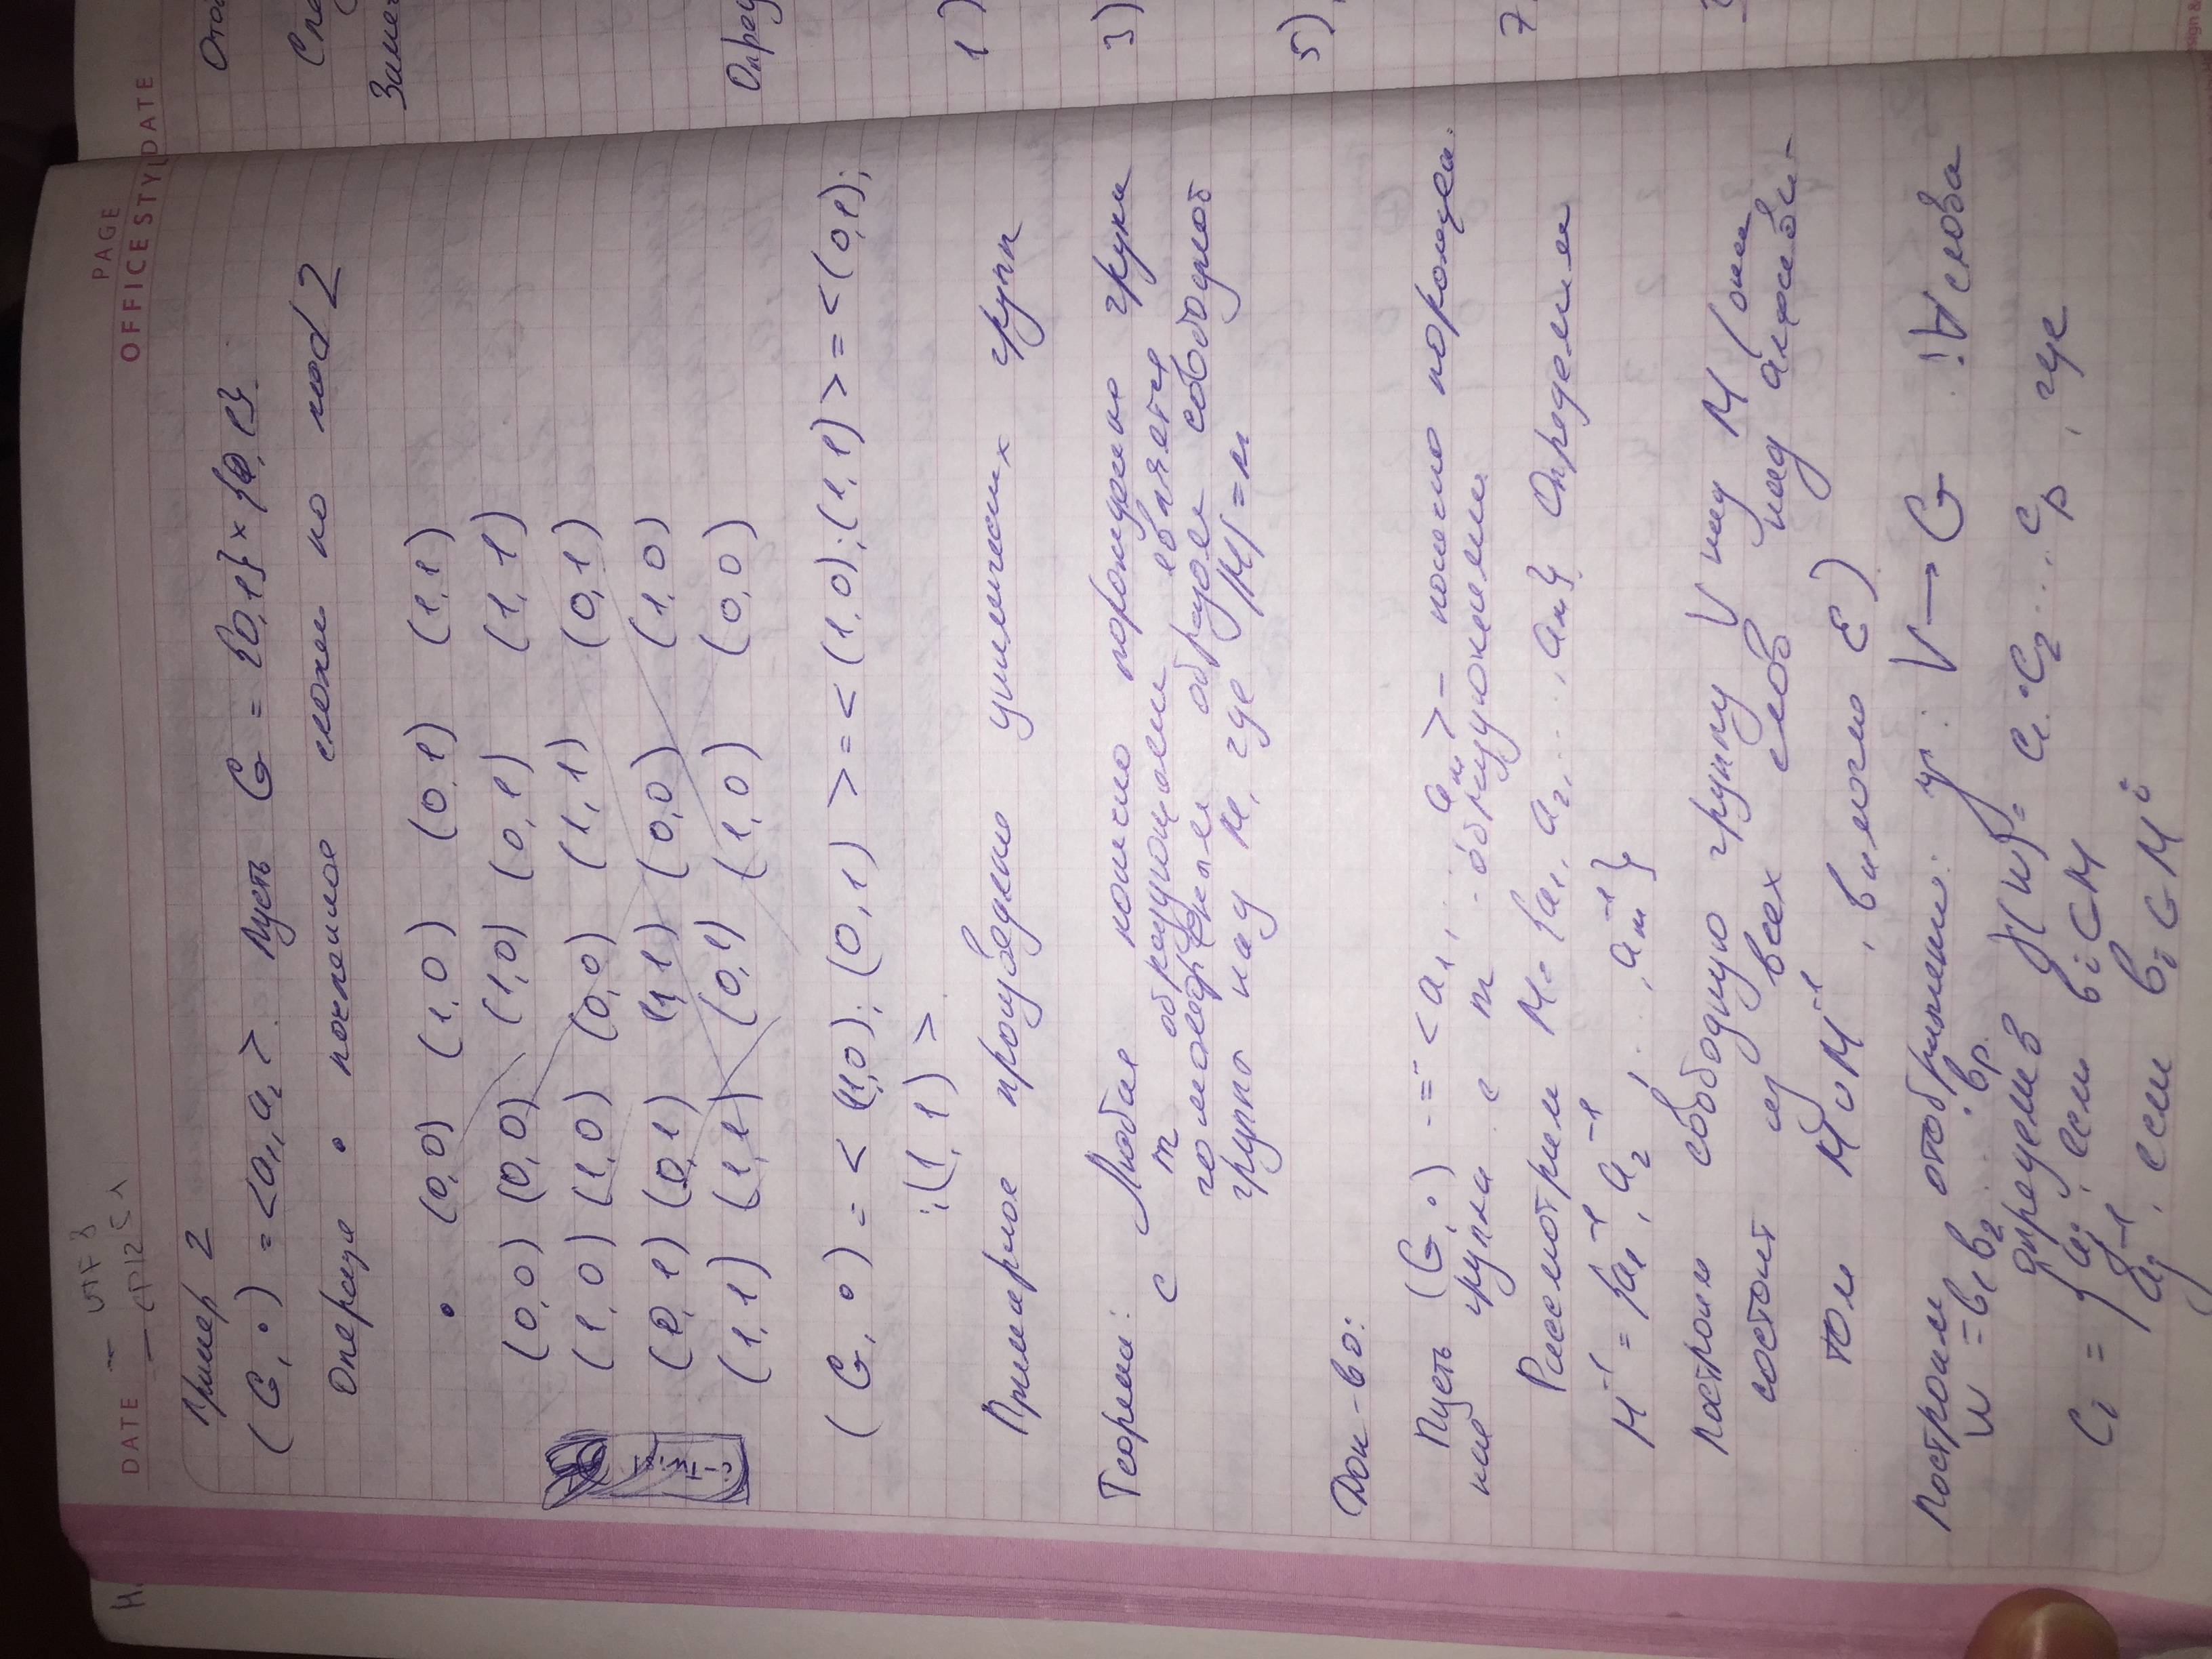 DATE
- UTF 8
- CP1251
PAGE
OFFICE STYL
DATE
Пример 2
(G, •) = <a₁, a₂>. Пусть G = {0,1} × {0,1}.
Операция • почленное сложен по mod 2
• (0,0) (1,0) (0,1) (1,1)
(0,0) (0,0) (1,0) (0,1) (1,1)
(1,0) (1,0) (0,0) (1,1) (0,1)
(0,1) (0,1) (1,1) (0,0) (1,0)
(1,1) (1,1) (0,1) (1,0) (0,0)
i-Twist
(G, •) = < (1,0); (0,1) > = < (1,0); (1,1) > = < (0,1);
;(1,1) >.
Примарное произведение циклических групп
Теорема: Любая конечно порожденно група
с m образующими, является
гомоморфным образом свободной
группы над M, где |M| = m
Док-во:
Пусть (G, •) = <a₁, ..., aₘ> - конечно порожден-
ная группа с m - образующими.
Рассмотрим M = {a₁, a₂, ..., aₘ}. Определим
M⁻¹ = {a₁⁻¹, a₂⁻¹, ..., aₘ⁻¹}
построим свободную группу V над M (она
состоит из всех слов над алфави-
том M ∪ M⁻¹, включая ε)
Построим отображение: φ: V → G !∀ слова
w = b₁b₂ ... bₚ.
определив (w) = c₁ • c₂ ... cₚ, где
cᵢ = { aⱼ, если bᵢ ∈ M
aⱼ⁻¹, если bᵢ ∈ M
Ото
Спе
Заме
Опред
1)
3)
5)
7